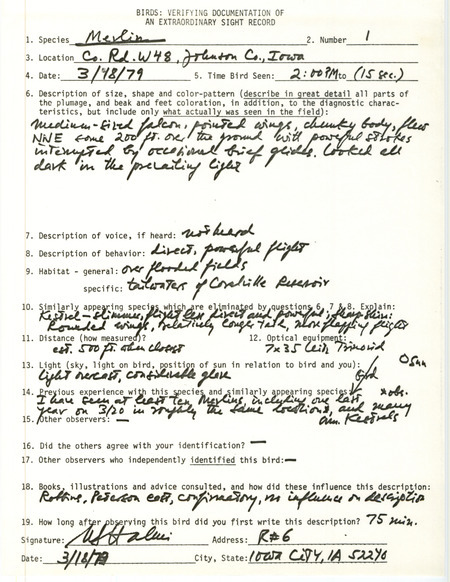 BIRDS: VERIFYING DOCUMENTATION OF
AN EXTRAORDINARY SIGHT RECORD
1. Species Merlin 2. Number 1
3. Location Co. Rd. W48, Johnson Co., Iowa
4. Date: 3/18/79 5. Time Bird Seen: 2:00 PM to (15 sec.)
6. Description of size, shape and color-pattern (describe in great detail all parts of
the plumage, and beak and feet coloration, in addition, to the diagnostic charac-
teristics, but include only what actually was seen in the field):
Medium-sized falcon, pointed wings, chunky body, flew
NNE some 200 ft. over the ground with powerful strokes
interrupted by occasional brief glides. Looked all
dark in the prevailing light
7. Description of voice, if heard: not heard
8. Description of behavior: direct, powerful flight
9. Habitat - general: over flooded fields
specific: tailwaters of Coralville Reservoir
10. Similarly appearing species which are eliminated by questions 6, 7 & 8. Explain:
Kestrel - slimmer, flight less direct and powerful; Sharp-shin:
Rounded wings, relatively longer tail, more flapping flight
11. Distance (how measured)? 12. Optical equipment:
est. 500 ft. when closest 7x35 Leitz Trinovid
13. Light (sky, light on bird, position of sun in relation to bird and you): O Sun
light overcast, considerable glare
14. Previous experience with this species and similarly appearing species: x obs.
I have seen at least ten Merlins, including one last
year on 3/20 in roughly the same location, and many
Am. Kestrels
15. Other observers: —
16. Did the others agree with your identification? —
17. Other observers who independently identified this bird: —
18. Books, illustrations and advice consulted, and how did these influence this description:
Robbins, Peterson east, confirmatory, no influence on description
19. How long after observing this bird did you first write this description? 75 min.
Signature: Address: R#6
Date: 3/18/79 City, State: Iowa City, IA 52240